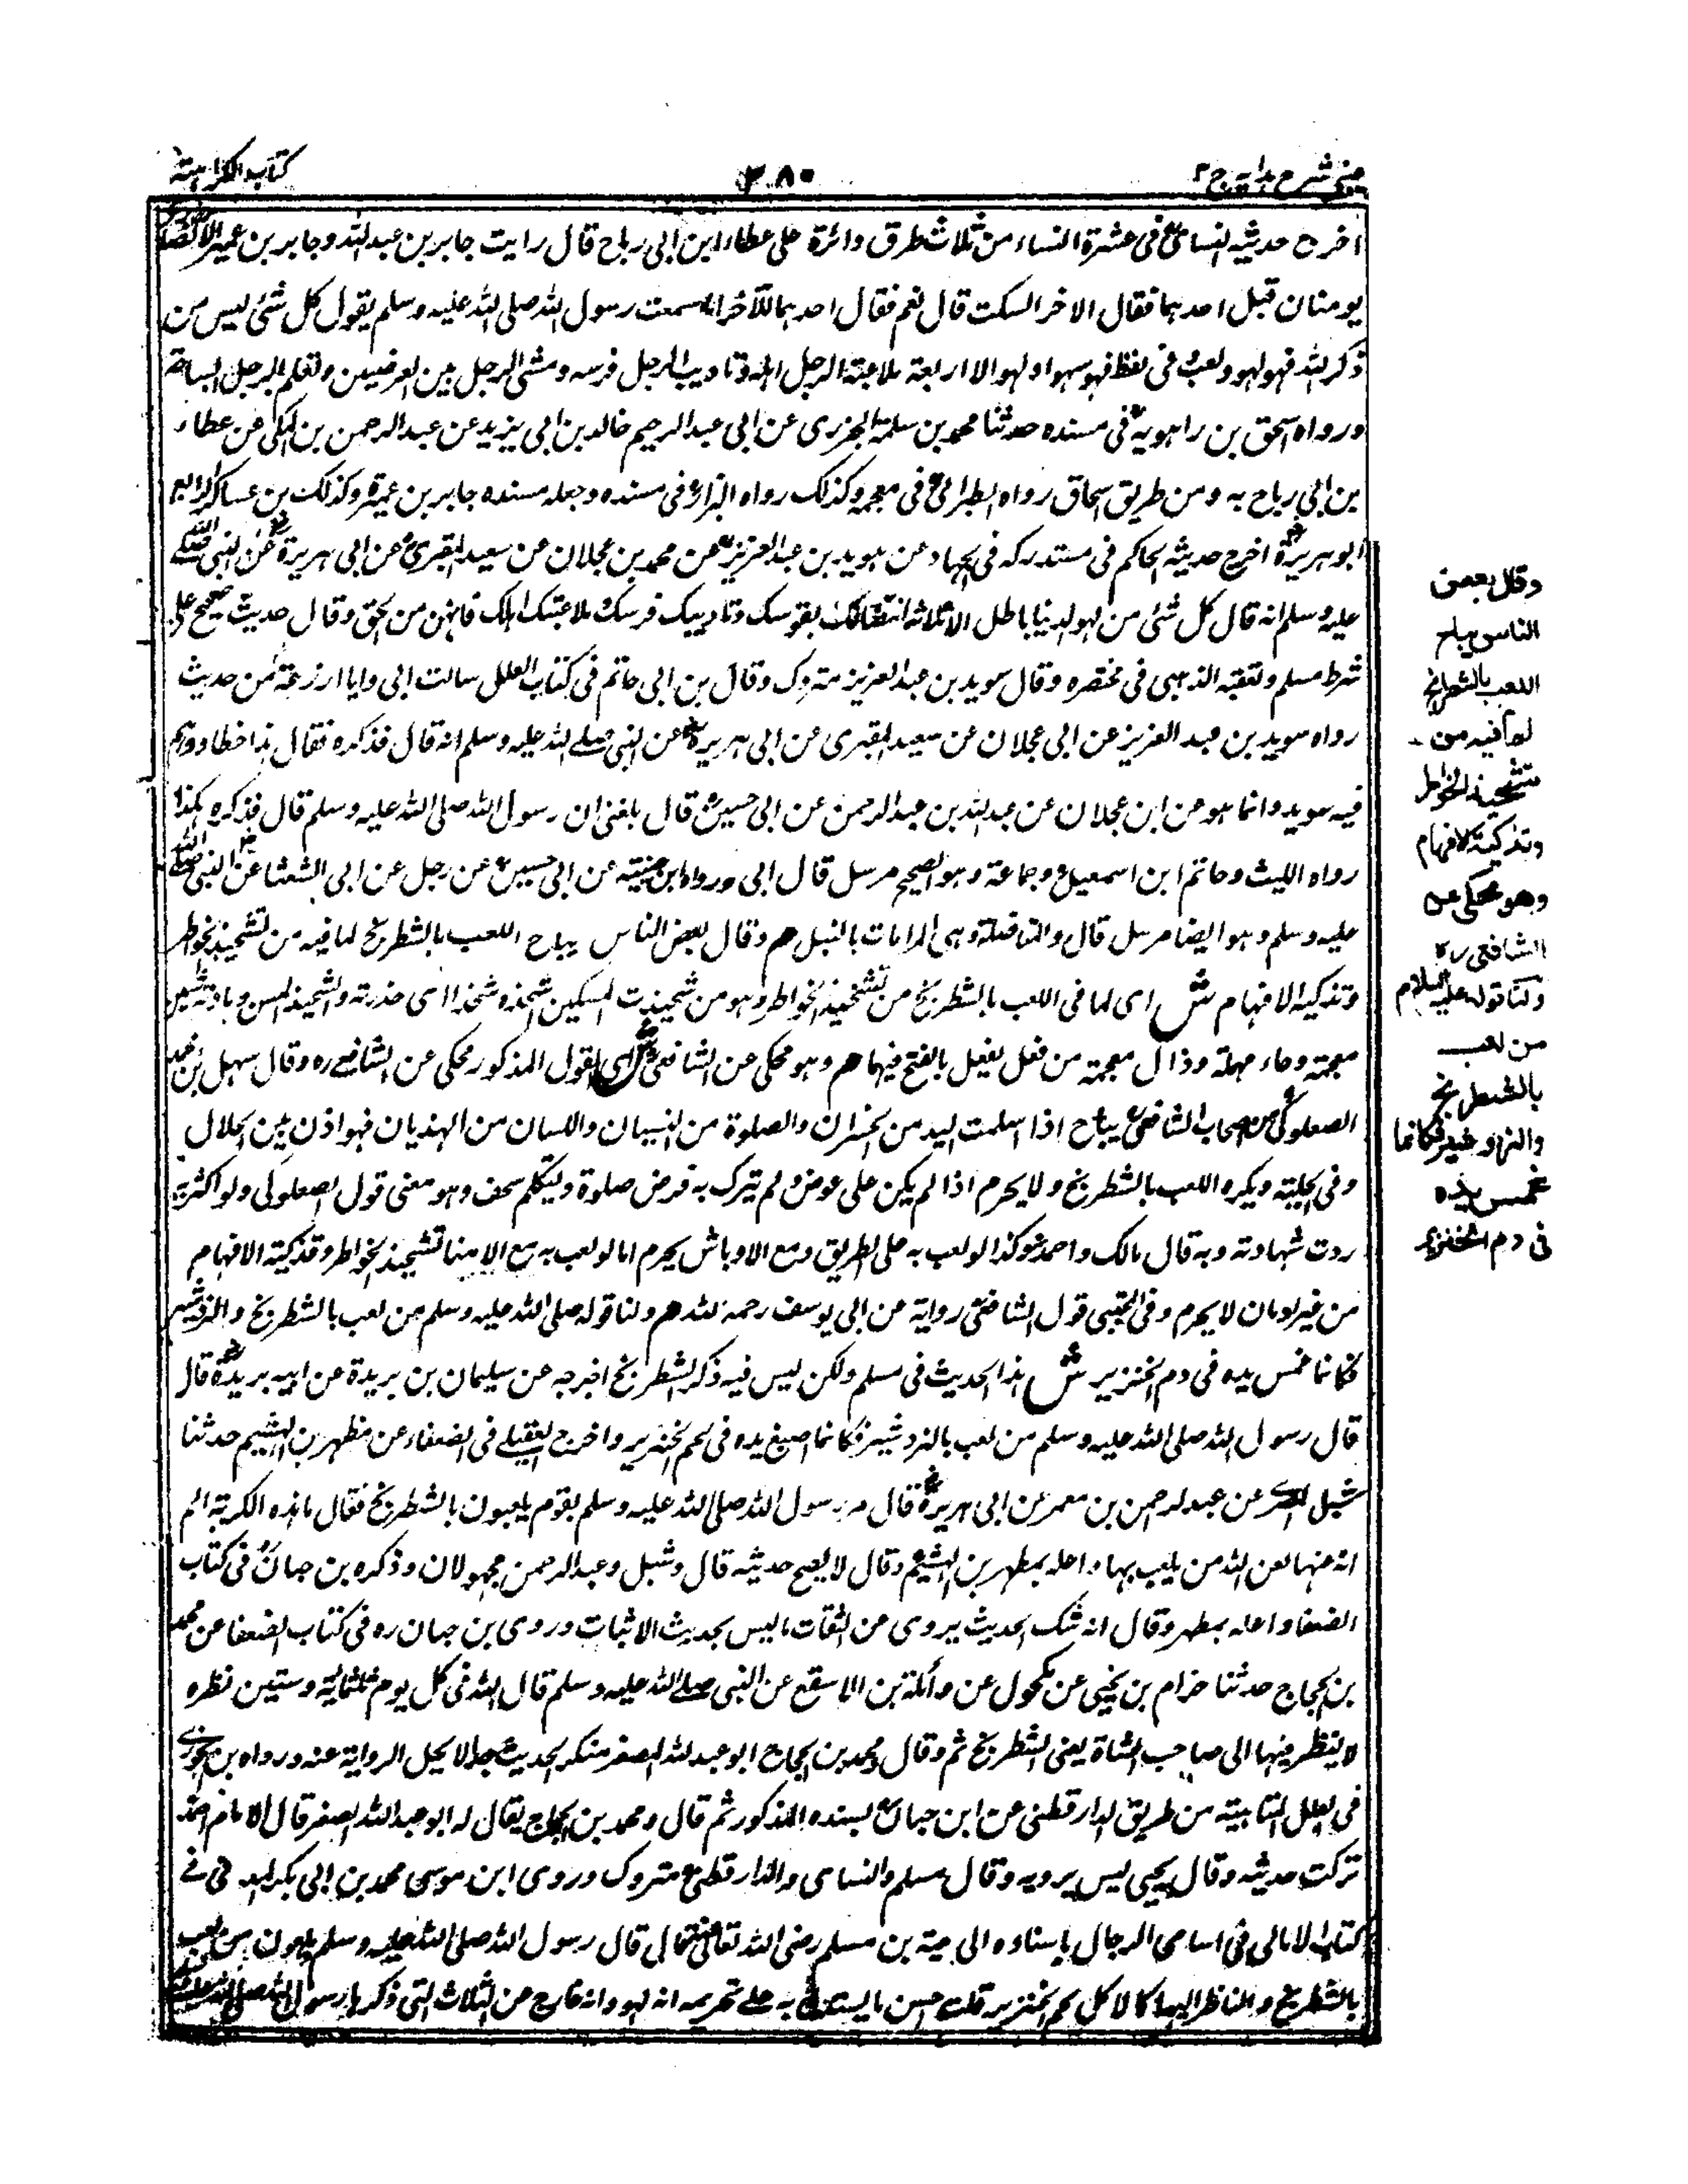 عینی شرح ہدایہ ج ۴
۳۸۰
کتاب الکراہیتہ
اخرج حدیثہ النسائی فی عشرۃ النساء من ثلاث طرق دائرۃ علی عطاء ابن ابی رباح قال رایت جابر بن عبد اللہ وجابر بن عمیر الانصاری
یومنان قبل احدہما فقال الاخر السکت قال نعم فقال احدہما للآخر اما سمعت رسول اللہ صلی اللہ علیہ وسلم یقول کل شئ لیس من
ذکر اللہ فہو لہو ولعب وفی لفظ فہو سہو او لہو الا اربعۃ ملاعبۃ الرجل اہلہ وتادیب الرجل فرسہ ومشی الرجل بین الغرضین وتعلم الرجل السباحۃ
ورواہ اسحق بن راہویہ فی مسندہ حدثنا محمد بن سلمۃ الجزری عن ابی عبد الرحیم خالد بن ابی یزید عن عبد الرحمن بن المکی عن عطاء
بن ابی رباح بہ ومن طریق اسحاق رواہ الطبرانی فی معجمہ وکذلک رواہ البزار فی مسندہ وجعلہ مسندہ جابر بن عمیرۃ وکذلک بن عساکر
ابو ہریرۃ اخرج حدیثہ الحاکم فی مستدرکہ فی الجہاد عن سوید بن عبد العزیز عن محمد بن عجلان عن سعید المقبری عن ابی ہریرۃ عن النبی صلی اللہ
علیہ وسلم انہ قال کل شئ من لہو الدنیا باطل الا ثلاثۃ انتضالک بقوسک وتادیبک فرسک وملاعبتک اہلک فانہن من الحق وقال حدیث صحیح علی
شرط مسلم وتعقبہ الذہبی فی مختصرہ وقال سوید بن عبد العزیز متروک وقال بن ابی حاتم فی کتاب العلل سالت ابی وابا زرعۃ من حدیث
رواہ سوید بن عبد العزیز عن ابی عجلان عن سعید المقبری عن ابی ہریرۃ عن النبی صلے اللہ علیہ وسلم انہ قال فذکرہ فقال ہذا خطا ووہم
فیہ سوید وانما ہو عن ابن عجلان عن عبد اللہ بن عبد الرحمن عن ابی حسین قال بلغنی ان رسول اللہ صلی اللہ علیہ وسلم قال فذکرہ ہکذا
رواہ اللیث وحاتم ابن اسمعیل وجماعۃ وہو الصحیح مرسل قال ابی ورواہ ابن عیینۃ عن ابی حسین عن رجل عن ابی الشعثا عن النبی صلی اللہ
علیہ وسلم وہو ایضا مرسل قال والمناضلۃ وہی المرامات بالنبل ھم وقال بعض الناس یباح اللعب بالشطرنج لما فیہ من تشحیذ الخواطر
وتذکیہ الافہام ش ای لما فی اللعب بالشطرنج من تشحیذ الخواطر وہو من شحیذت السکین شحذہ شحذا ای حذرتہ والشحیذ المسن
معجمۃ وحاء مہملۃ وذال معجمۃ من فعل یفعل بالفتح فیہما ھم وہو محکی عن الشافعی ش ای القول المذکور محکی عن الشافعے رہ وقال سہل بن محمد
الصعلوکی من اصحاب الشافعی یباح اذا سلمت الید من الخسران والصلوۃ من النسیان واللسان من الہذیان فہو اذن بین الحلال
وفی الحلیتہ ویکرہ اللعب بالشطرنج ولا یحرم اذا لم یکن علی عوض ولم یترک بہ فرض صلوۃ ولیتکلم سخف وہو معنی قول الصعلوکی ولو اکثر
ردت شہادتہ وبہ قال مالک واحمد وکذا لو لعب بہ علی الطریق ومع الاوباش یحرم اما لو لعب بہ مع الامنا تشحیذ الخواطر وتذکیتہ الافہام
من غیر ادمان لا یحرم وفی المجتبی قول الشافعی روایۃ عن ابی یوسف رحمہ اللہ ھم ولنا قولہ صلی اللہ علیہ وسلم من لعب بالشطرنج والنردشیر
فکانما غمس یدہ فی دم الخنزیر ش ہذا الحدیث فی مسلم ولکن لیس فیہ ذکر الشطرنج اخرجہ عن سلیمان بن بریدۃ عن ابیہ بریدۃ قال
قال رسول اللہ صلی اللہ علیہ وسلم من لعب بالنردشیر فکانما صبغ یدہ فی لحم الخنزیر واخرج العقیلے فی الضعفاء عن مطہر بن الہیثیم حدثنا
شبل المصری عن عبد الرحمن بن معمر عن ابی ہریرۃ قال مر رسول اللہ صلی اللہ علیہ وسلم بقوم یلعبون بالشطرنج فقال ما ہذہ الکوبۃ الم
انہ عنہا لعن اللہ من یلعب بہا واعلہ بمطہر بن الہیثم وقال لا یصح حدیثہ قال وشبل وعبد الرحمن مجہولان وذکرہ بن حبان فی کتاب
الضعفا واعلہ بمطہر وقال انہ منکر الحدیث یروی عن الثقات ما لیس بحدیث الاثبات وروی بن حبان رہ فی کتاب الضعفا عن محمد
بن الحجاج حدثنا حزام بن یحیی عن مکحول عن واثلۃ بن الاسقع عن النبی صلے اللہ علیہ وسلم قال للہ فی کل یوم ثلثمائۃ وستین نظرہ
لا ینظر فیہا الی صاحب الشاۃ یعنی الشطرنج ثم وقال ومحمد بن الحجاج ابو عبد اللہ المصفر منکر الحدیث جدا لا یحل الروایۃ عنہ ورواہ بن الجوزی
فی العلل المتناہیتہ من طریق الدارقطنی عن ابن حبان بسندہ المذکور ثم قال ومحمد بن الحجاج یقال لہ ابو عبد اللہ المصفر قال الامام احمد
ترکت حدیثہ وقال یحیی لیس یرویہ وقال مسلم والنسای والدارقطنی متروک وروی ابن موسی محمد بن ابی بکر المدینی فے
کتاب الامالی فی اسامی الرجال باسنادہ الی حبۃ بن مسلم رضی اللہ تعالی عنہ قال قال رسول اللہ صلی اللہ علیہ وسلم ملعون من لعب
بالشطرنج والناظر الیہا کالاکل لحم الخنزیر قلت احسن ما یستدل بہ علے تحریمہ انہ لہو وانہ خارج من الثلاث التی ذکرہا رسول اللہ صلی اللہ علیہ
وقال بعض
الناس یباح
اللعب بالشطرنج
لما فیہ من
تشحیذ الخواطر
وتذکیۃ الافہام
وھو محکی عن
الشافعی رہ
ولنا قولہ علیہ السلام
من لعب
بالشطرنج
والنردشیر فکانما
غمس یدہ
فی دم الخنزیر